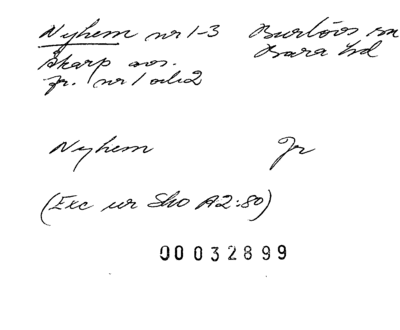 Nyhem nr 1-3 Burlövs sn
Skarp avs. Bara hd
fr. nr 1 och 2
Nyhem Jr
(Exc ur Sko A2:80)
00032899